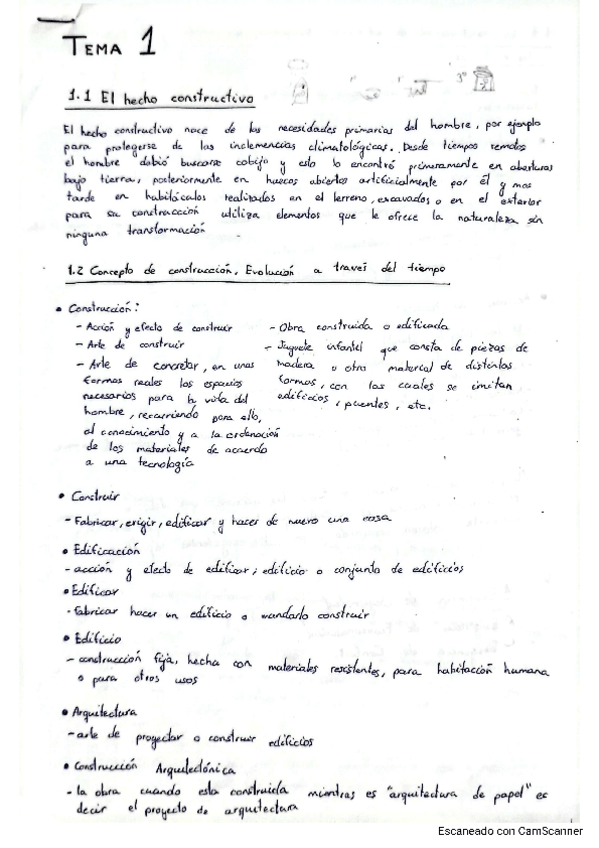 TEMA 1
1º 3º
1.1 El hecho constructivo
El hecho constructivo nace de las necesidades primarias del hombre, por ejemplo
para protegerse de las inclemencias climatológicas. Desde tiempos remotos
el hombre debió buscarse cobijo y esto lo encontró primeramente en aberturas
bajo tierra, posteriormente en huecos abiertos artificialmente por él y mas
tarde en habitáculos realizados en el terreno, excavados o en el exterior
para su construcción utiliza elementos que le ofrece la naturaleza sin
ninguna transformación
1.2 Concepto de construcción. Evolución a través del tiempo
• Construcción:
- Acción y efecto de construir
- Arte de construir
- Arte de concretar, en unas
formas reales los espacios
necesarios para la vida del
hombre, recurriendo para ello,
al conocimiento y a la ordenación
de los materiales de acuerdo
a una tecnología
- Obra construida o edificada
- Juguete infantil que consta de piezas de
madera u otro material de distintas
formas, con las cuales se imitan
edificios, puentes, etc.
• Construir
- Fabricar, erigir, edificar y hacer de nuevo una cosa
• Edificación
- acción y efecto de edificar; edificio o conjunto de edificios
• Edificar
- Fabricar hacer un edificio o mandarlo construir
• Edificio
- construcción fija, hecha con materiales resistentes, para habitación humana
o para otros usos
• Arquitectura
- arte de proyectar o construir edificios
• Construcción Arquitectónica
- la obra cuando esta construida mientras es "arquitectura de papel" es
decir el proyecto de arquitectura
Escaneado con CamScanner